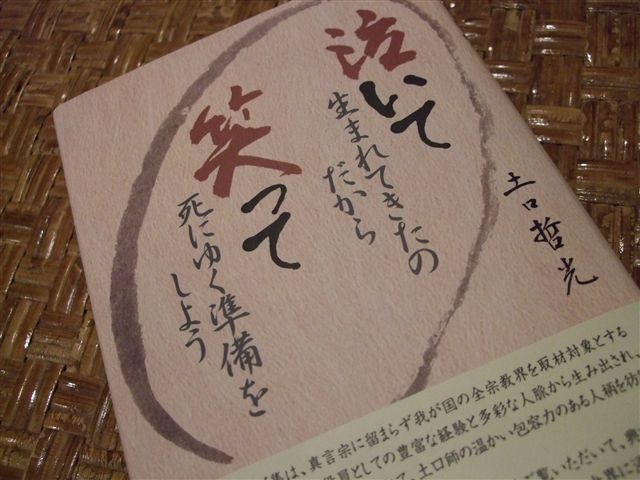 泣いて
生まれてきたの
だから
笑って
死にゆく準備を
しよう
土口哲光
集は、真言宗に留まらず我が国の全宗教界を取材対象とする
役員としての豊富な経験と多彩な人脈から生み出され、
土口師の温かい包容力のある人柄を
ご覧いただいて、